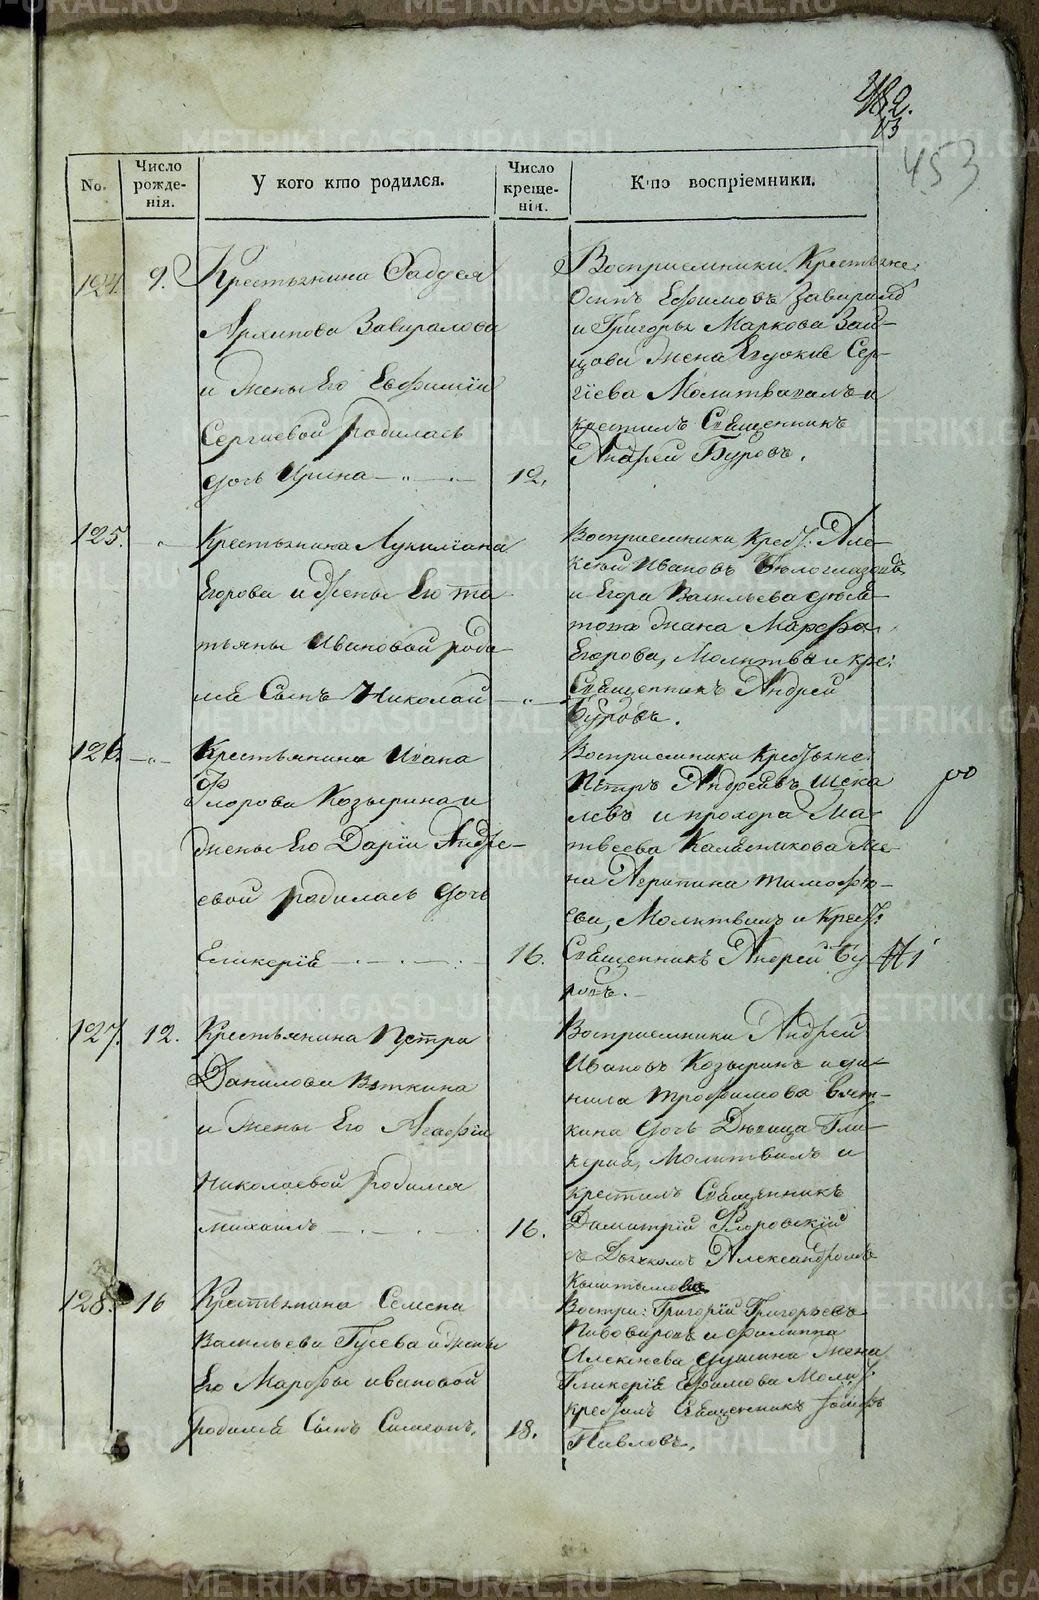 453
No.
Число рожде- нія.
У кого кто родился.
Число креще- нія.
Кто воспріемники.
124. 9.
Крестьянина Фадден
Архипова Завиралова
и жены Его Евфиміи
Сергиевой родилась
дочь Ирина
12.
Восприемники Крестьяне:
Осипъ Ефимовъ Завираловъ
и Григорья Маркова Зай-
цова жена Евдокия Сер-
гіева Молитвовалъ и
крестилъ Священникъ
Андрей Буровъ.
125.
Крестьянина Лукиліана
Егорова и жены Его та
тьяны Ивановой роди
лся Сынъ Николай
Восприемники Крест: Але-
ксѣй Ивановъ Бѣлоглазовъ
и Егора Васильева
жена Марфа
Егорова, Молитвов и кре:
Священникъ Андрей
Буровъ.
126.
Крестьянина Ивана
Флорова Козырина и
жены Его Даріи Андре-
евой родилась дочь
Гликерія
16.
Восприемники Крестьяне:
Петръ Андреевъ Шека
левъ и прохора Ма-
твеева Калесникова Же-
на Агрипина тимофѣ-
ева, Молитвилъ и Крест:
Священникъ Андрей Бу
ровъ.
127. 12.
Крестьянина Петра
Данилова Вяткина
и жены Его Агафіи
Николаевой родился
михаилъ
16.
Восприемники Андрей
Ивановъ Козыринъ и да-
нила трофимова Вят-
кина дочь Дѣвица Гли-
керия, Молитвилъ и
крестилъ Священникъ
Димитрій Флоровскій
съ Дьячкомъ Александромъ
128. 16
Крестьянина Семена
Васильева Гусева и жены
Его Марфы ивановой
родился Сынъ Симеонъ.
18.
Воспри: Григорій Григорьевъ
Пивоваровъ и филиппа
Алексеева душина Жена
Гликерія Ефимова Молит:
крестилъ Священникъ Іосифъ
Павловъ.
METRIKI.GASO-URAL.RU